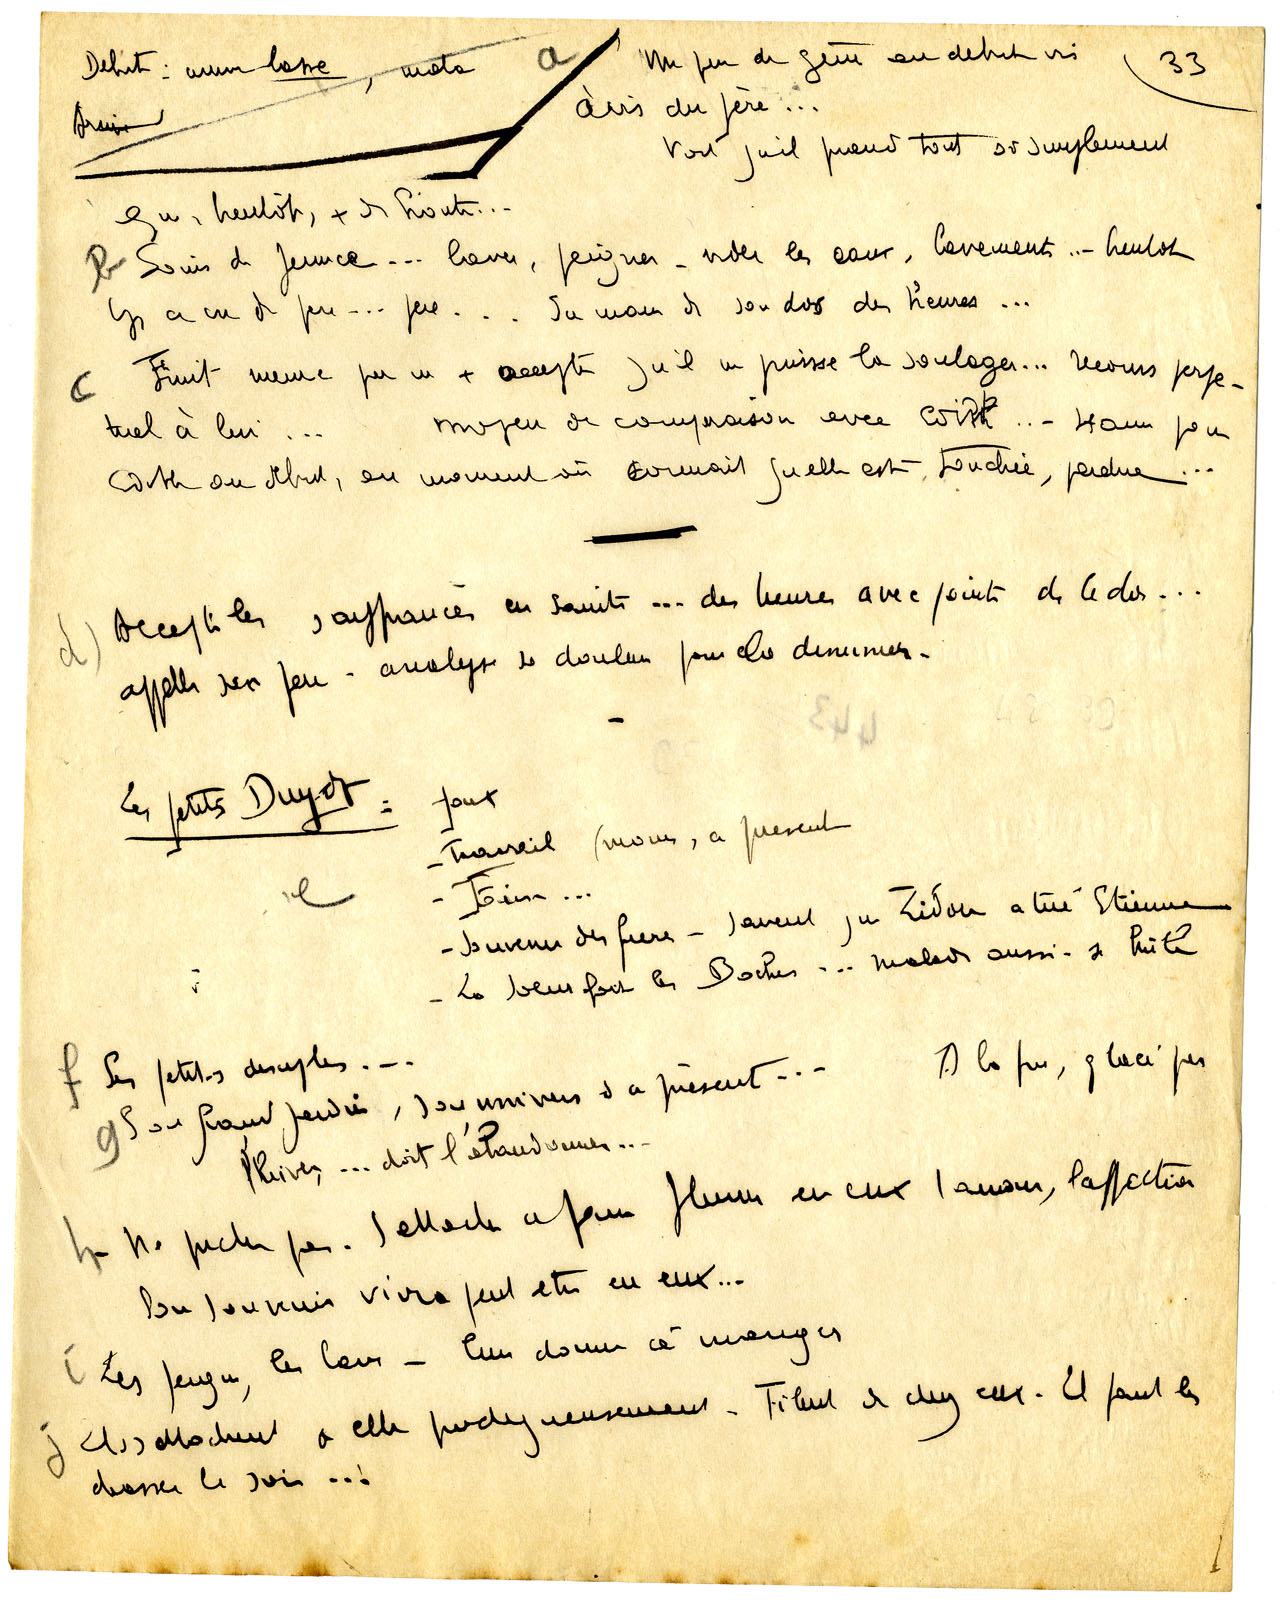 Début : lasse, mata
a Un peu de gêne au début vis
33
à vis du père...
Voit qu'il prend tout si simplement
Que, bientôt, + de honte...
b Soins de femme... laver, peigner - vider les eaux, lavements... bientôt
il y a que le père... père... Sa main ds son dos des heures...
c Finit même par ne + accepter qu'il ne puisse la soulager... recours perpé-
tuel à lui... moyen de comparaison avec Edith... - pour
Edith au début, au moment où connait qu'elle est touchée, perdue...
d) Accepte les souffrances en sainte... des heures avec points ds le dos...
appelle son père - analyse sa douleur pour la diminuer -
Les petits : poux
- Travail (moins, à présent
e - Faim...
- Souvenir des frères - savent que a tué Etienne
- La soeur fait les Boches... malade aussi -
f Les petites disciples...
g Son grand jardin, son univers à présent... A la fin, glacé par
l'hiver,... doit l'abandonner...
h Ne prêche pas. S'attache à faire fleurir en eux l'amour, l'affection
Son souvenir vivra peut être en eux...
i Les peigne, les lave - leur donne à manger
j s'attachent à elle prodigieusement - Filent de chez eux. Il faut les
chasser le soir...!